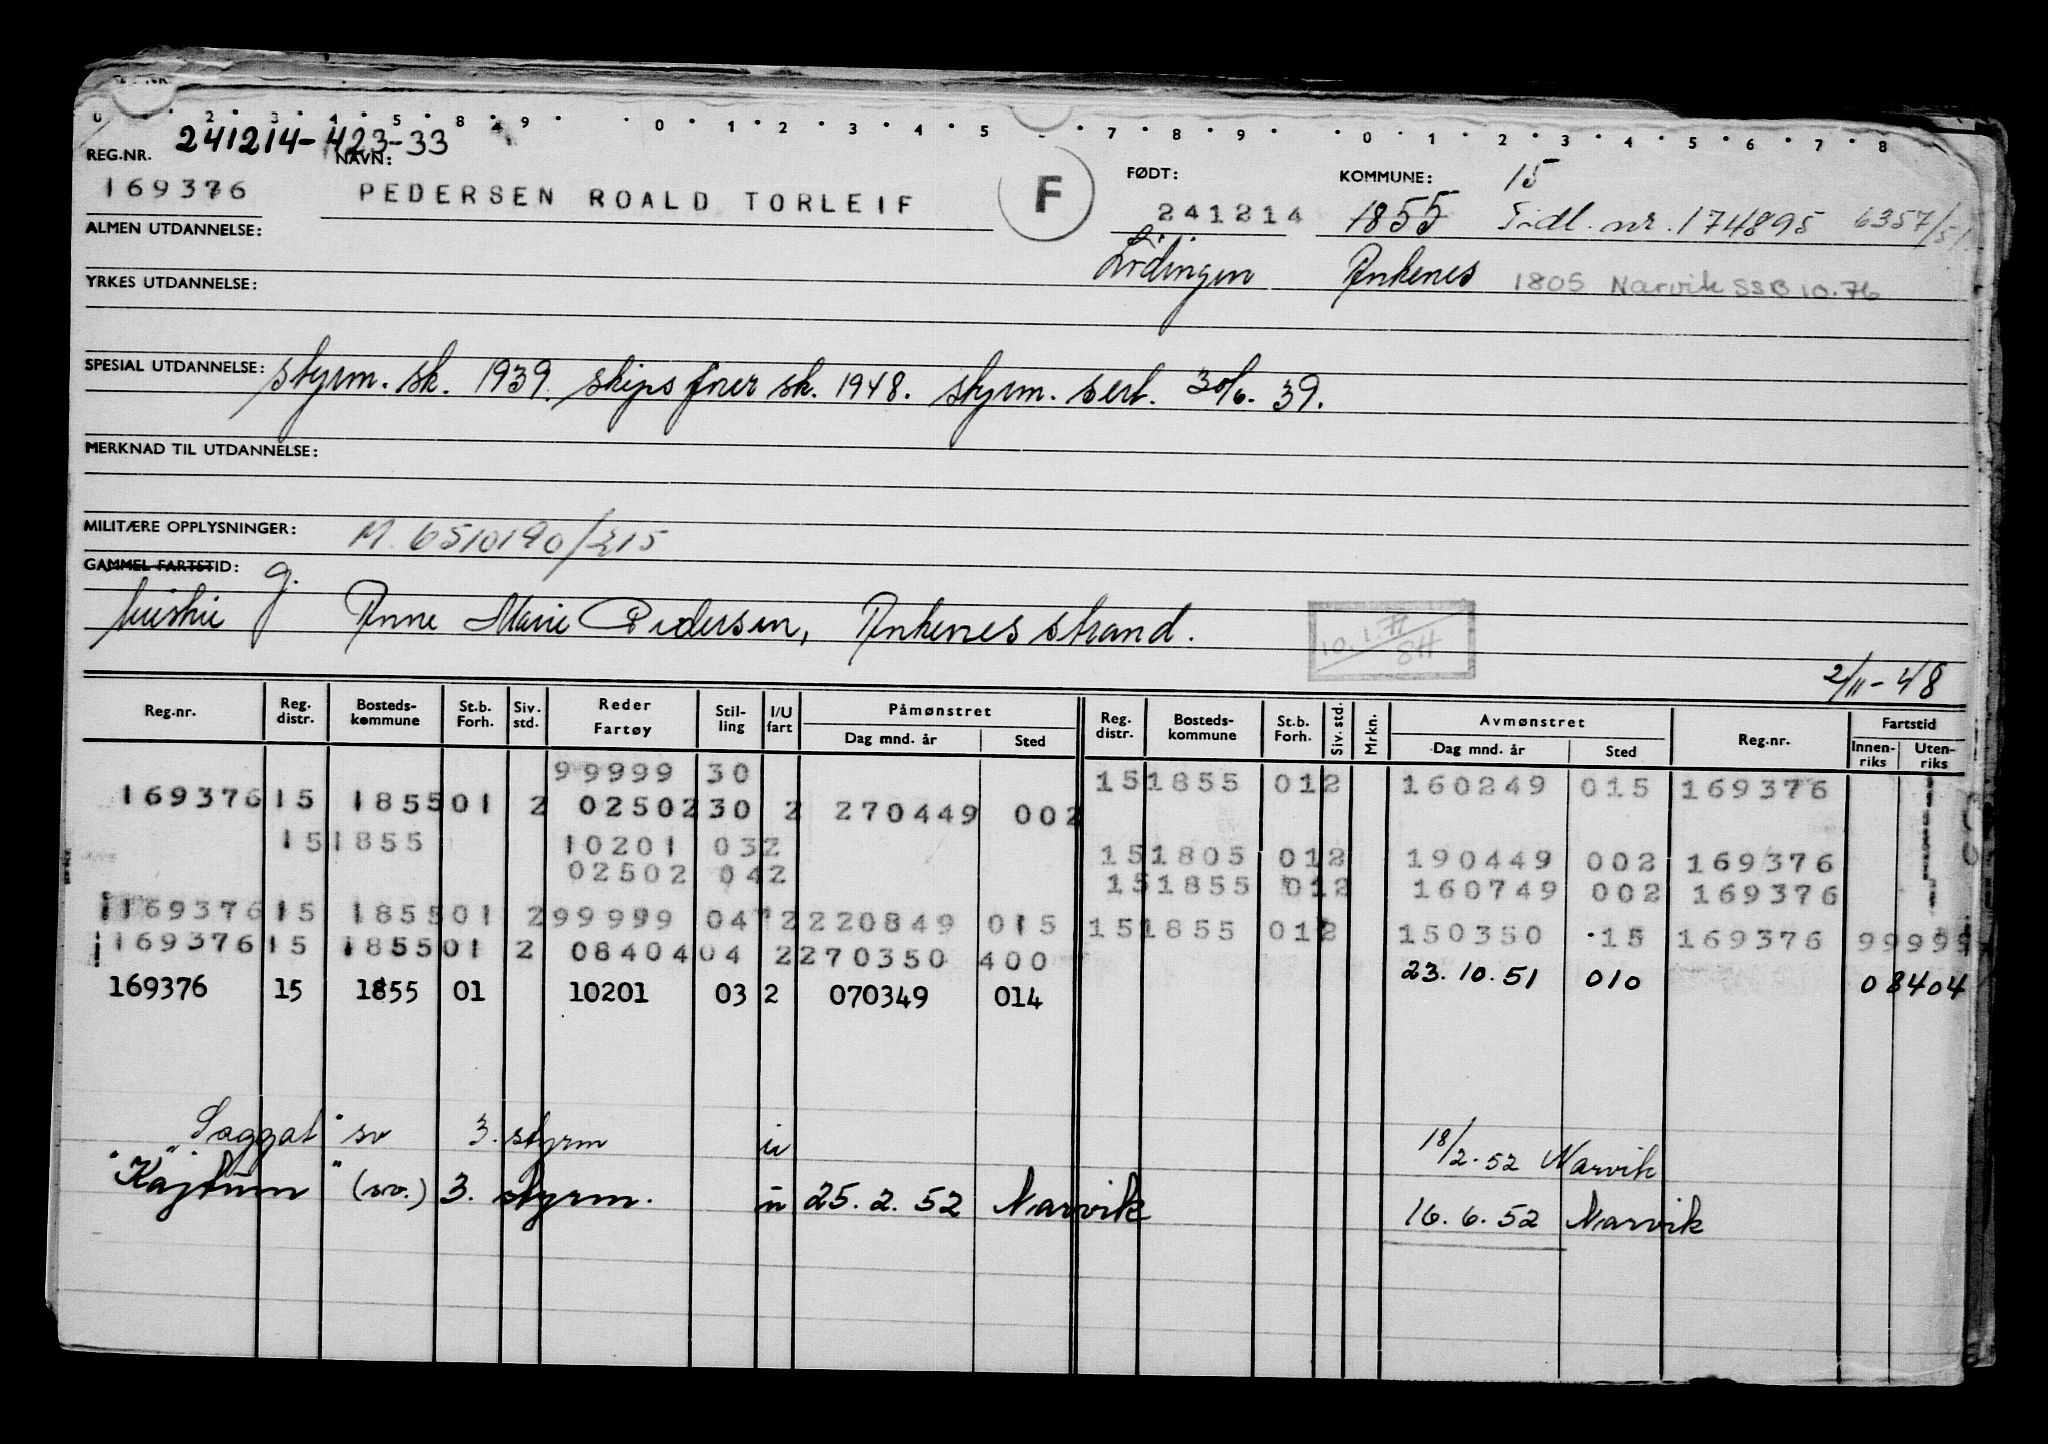 0 · 2 · 3 · 4 · 5 · 8 · 9 · 0 · 1 · 2 · 3 · 4 · 5 · 7 · 8 · 9 · 0 · 1 · 2 · 3 · 4 · 5 · 6 · 7 · 8
241214-423-33
REG.NR. NAVN: FØDT: KOMMUNE: 15
169376 PEDERSEN ROALD TORLEIF F 241214 1855 Tidl. nr. 174895 6357/51
ALMEN UTDANNELSE: Lødingen Ankenes 1805 Narvik SSB 10.76
YRKES UTDANNELSE:
SPESIAL UTDANNELSE: styrm. sk. 1939. skipsfører sk. 1948. styrm. sert. 30/6. 39.
MERKNAD TIL UTDANNELSE:
MILITÆRE OPPLYSNINGER: M. 6510190/215
GAMMEL FARTSTID: g.
hustru Anne Marie Pedersen, Ankenesstrand. 10.1.71 SH
2/11-48
Reg.nr. Reg. distr. Bosteds-kommune St.b. Forh. Siv. std. Reder Fartøy Stil-ling I/U fart Påmønstret Dag mnd. år Sted Reg. distr. Bosteds-kommune St.b. Forh. Siv. std. Mrkn. Avmønstret Dag mnd. år Sted Reg.nr. Fartstid Innen-riks Uten-riks
99999 30 15 1855 01 2 160249 015 169376
169376 15 1855 01 2 02502 30 2 270449 002
15 1855 10201 03 2 15 1805 01 2 190449 002 169376
02502 04 2 15 1855 01 2 160749 002 169376
169376 15 1855 01 2 99999 04 2 220849 015 15 1855 01 2 150350 15 169376 99999
169376 15 1855 01 2 08404 04 2 270350 400 23.10.51 010 08404
169376 15 1855 01 10201 03 2 070349 014
"Saggat" sv 3. styrm u 18/2.52 Narvik
"Kajtum" (sv.) 3. styrm. u 25.2.52 Narvik 16.6.52 Narvik